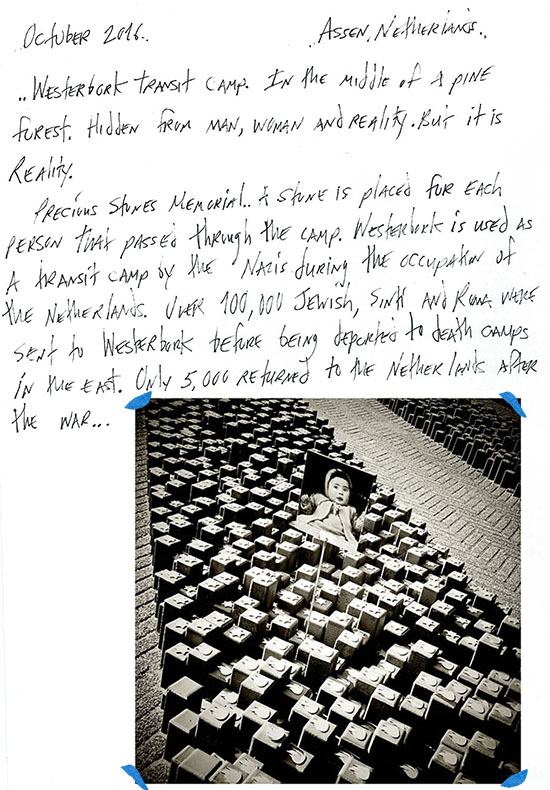 October 2016..
Assen, Netherlands..
..Westerbork transit camp. In the middle of a pine
forest. Hidden from man, woman and reality. But it is
Reality.
Precious Stones Memorial.. A stone is placed for each
person that passed through the camp. Westerbork is used as
a transit camp by the Nazis during the occupation of
the Netherlands. Over 100,000 Jewish, Sinti and Roma were
sent to Westerbork before being deported to death camps
in the east. Only 5,000 returned to the Netherlands after
the war...